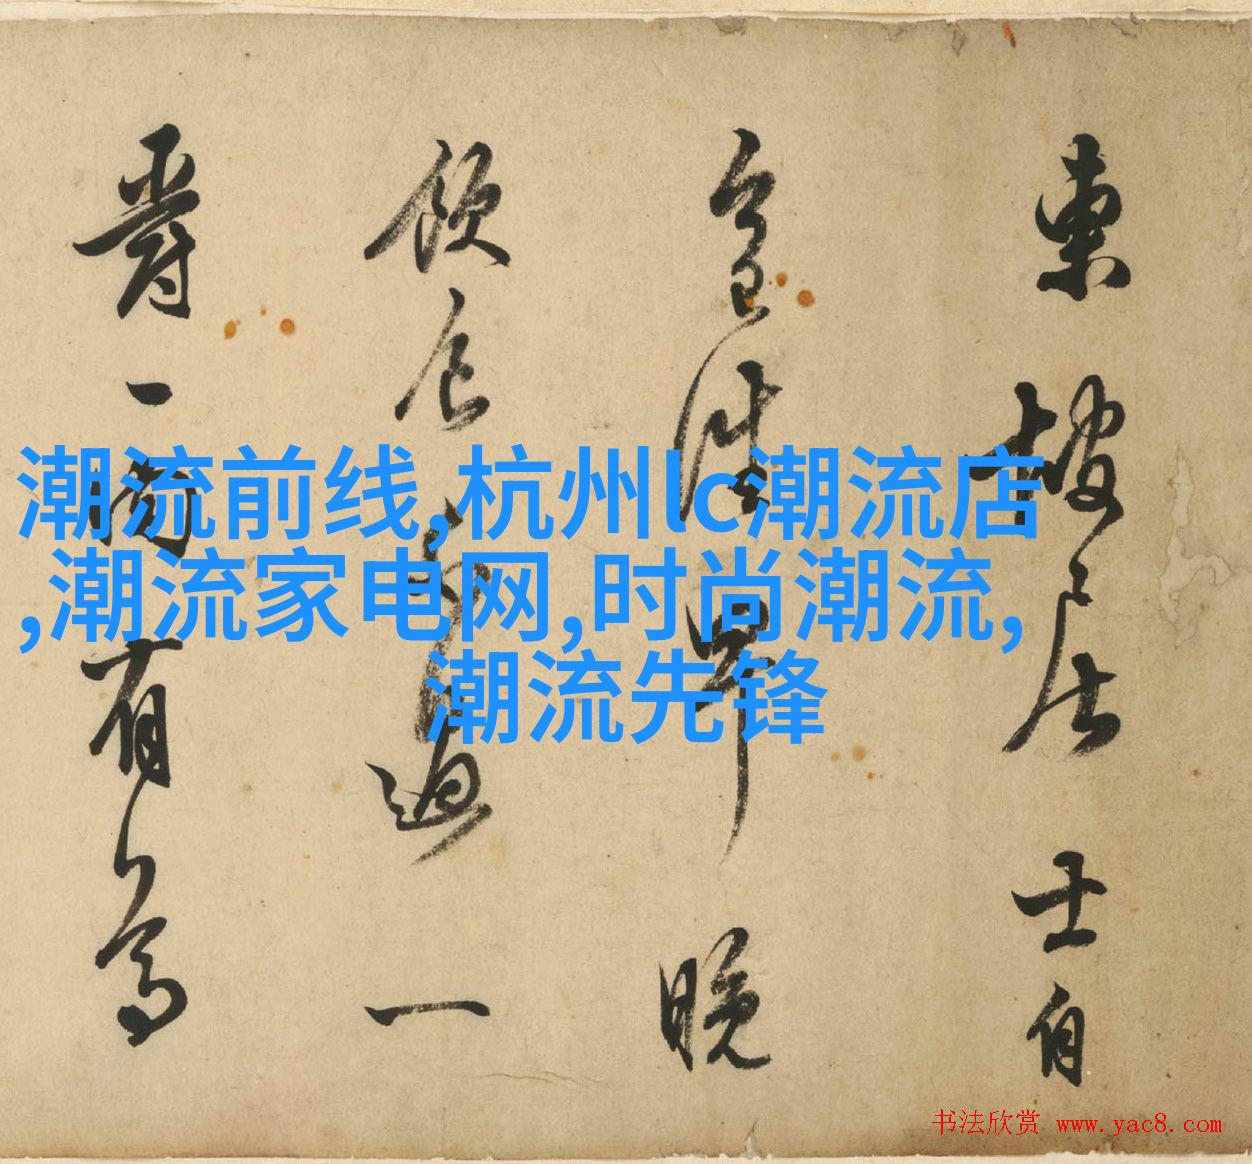 東坡居士自
今日往早晚
飲食不過一
爵一肉有尊
潮流前线,杭州lc潮流店
,潮流家电网,时尚潮流,
潮流先锋
书法欣赏 www.yac8.com